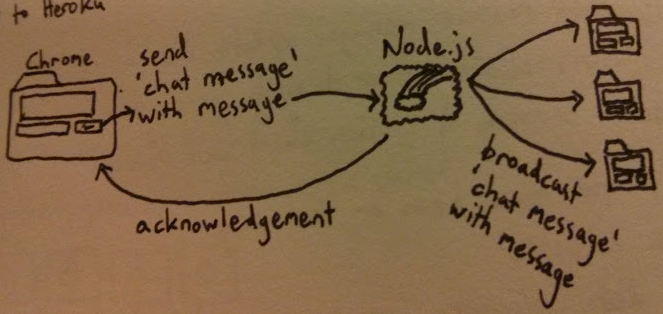 to Heroku
Chrome
send
'chat message'
with message
Node.js
acknowledgement
broadcast
'chat message'
with message